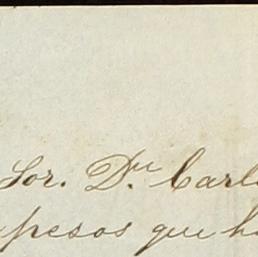 Sor. Dn. Carl
pesos que h